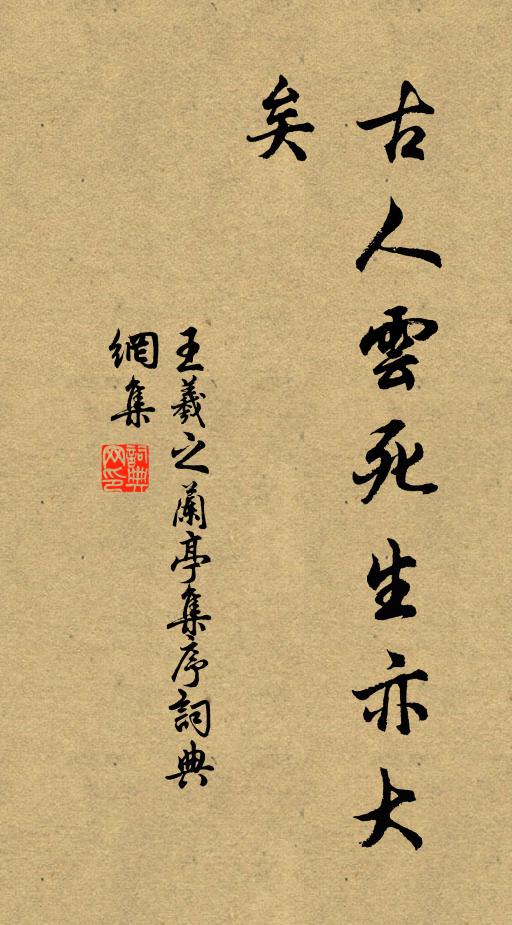 古人雲死生亦大
矣
王羲之蘭亭集序詞典
網集
詞典
网印